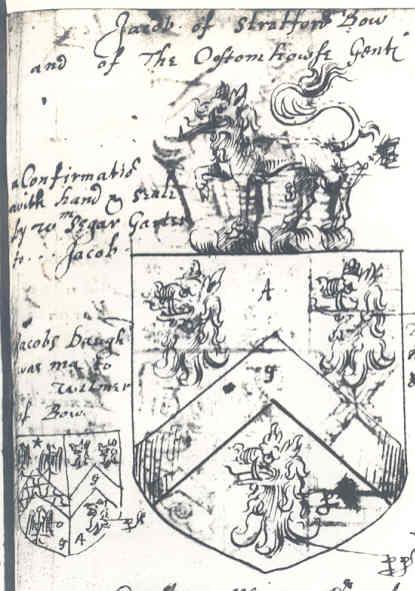 Jacob of Stratford Bow
and of The Costomhowse Gentˡ
a Confirmatiō
with hand & seale
by Wᵐ Segar Garter
to .. Jacob
Jacobs daugh
was ma to
Willmer
of Bow.
A
g
g
A